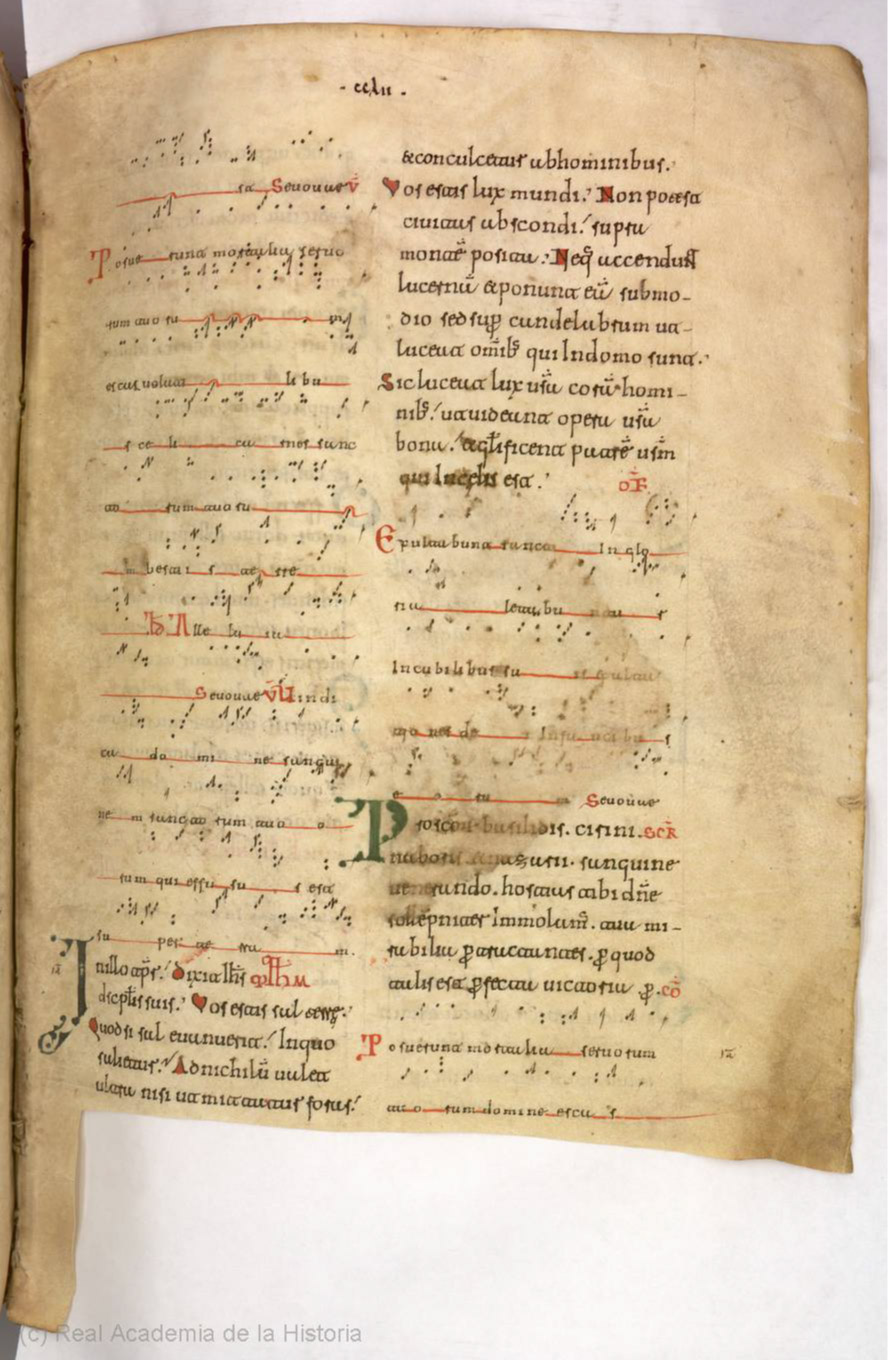 · ccLii ·
ra Seuouae V
Posuerunt mortalia seruo
rum tuoru m
escas uolati libu
s celi carnes sanc
torum tuoru
m bestiis terre
Alle lu ia
Seuouae V Uindi
ca do mi ne sangui
nem sanctorum tuo
rum qui effusus est
super terra m.
In illo tpr̄. Dixit ihs̄
discplis suis. Vos estis sal terre.
Quod si sal euanuerit. In quo
salietur. Ad nichilū ualet
ultra nisi ut mittatur foras.
& conculcetur ab hominibus.
Vos estis lux mundi. Non potest
ciuitas abscondi. supra
montē posita. Neq; accendunt
lucernā & ponunt eā sub mo-
dio sed sup candelabrum ut
luceat omīb; qui In domo sunt.
Sic luceat lux urā corā homi-
nib; ut uideant opera urā
bona. & glificent patrē urm̄
qui In celis est. OF
Exultabunt sancti In glo
ria letabu ntur
In cubilibus suis exulta
tiones dei In faucibus
eoru m Seuouae
Pro scōrū basilidis. cirini. SCR
naboris & nazarii. sanguine
uenerando. hostias tibi dn̄e
sollēpniter Immolam̄. tua mi-
rabilia ptractantes. p quod
talis est pfecta uictoria p. CŌ
Posuerunt mortalia seruorum
tuorum domine esca s